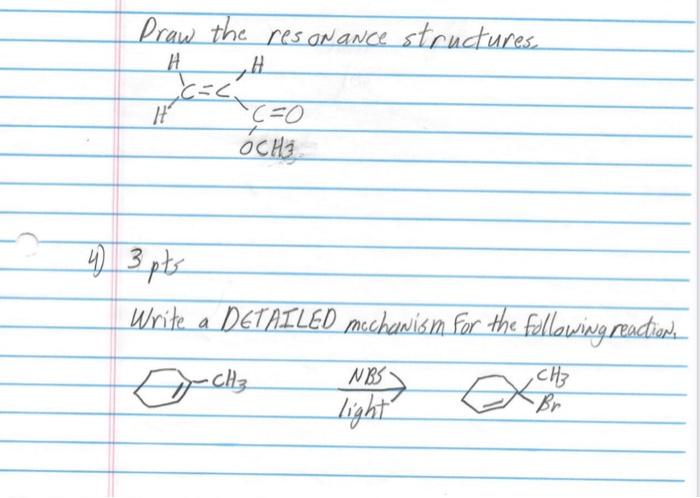 Draw the resonance structures.
H H
C=C
H C=O
OCH3
4) 3 pts
Write a DETAILED mechanism for the following reaction.
-CH3 NBS CH3
light Br